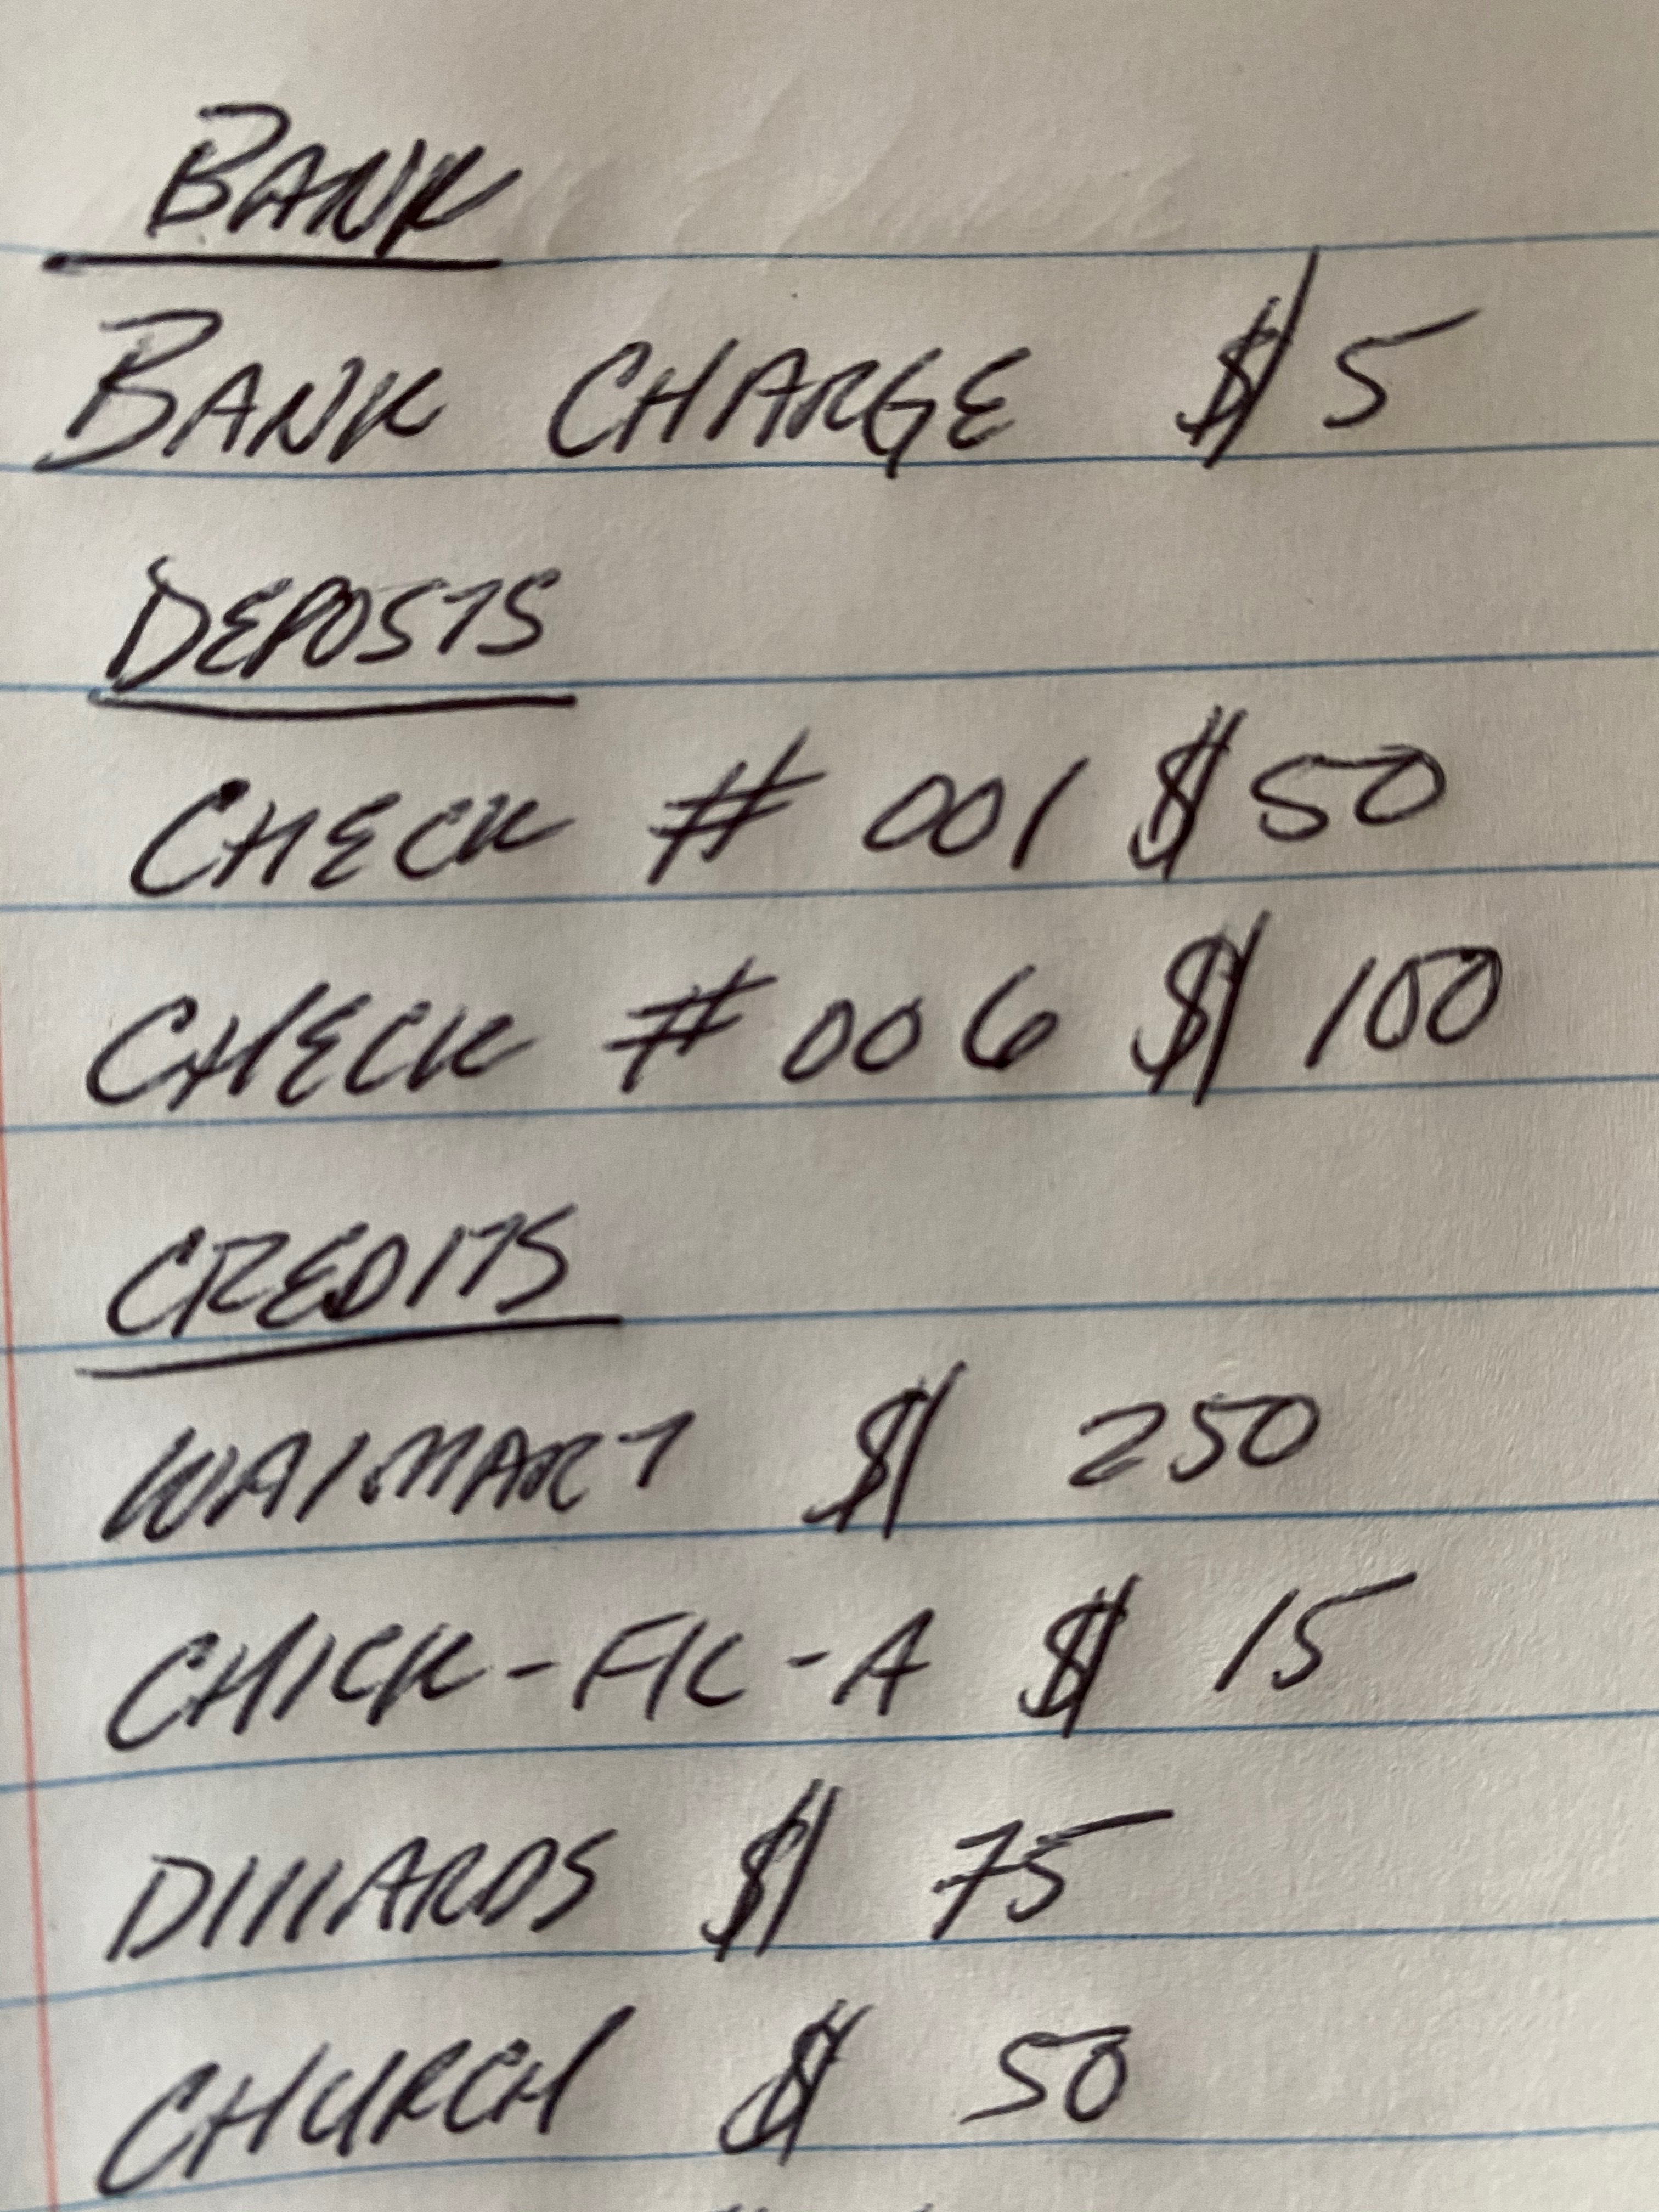 BANK
BANK CHARGE $5
DEPOSTS
CHECK # 001 $50
CHECK # 006 $100
CREDITS
WAlMART $ 250
CHICK-FIL-A $ 15
DIllARDS $ 75
CHURCH $ 50